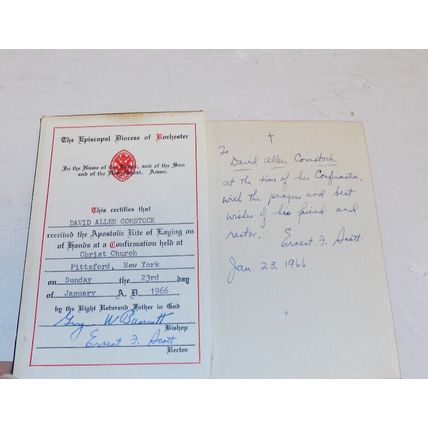 The Episcopal Diocese of Rochester
In the Name of the Father, and of the Son
and of the Holy Ghost. Amen.
This certifies that
DAVID ALLEN COMSTOCK
received the Apostolic Rite of Laying on
of Hands at a Confirmation held at
Christ Church
Pittsford, New York
on Sunday the 23rd day
of January A. D. 1966
by the Right Reverend Father in God
W Barrett
Bishop
Ernest F. Scott
Rector
To
David Allen Comstock
at the time of his Confirmation,
with the prayers and best
wishes of his friend and
rector,
Ernest F. Scott.
Jan. 23, 1966